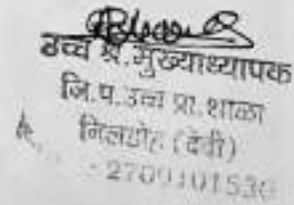 उच्च श्रे. मुख्याध्यापक
जि.प. उच्च प्रा. शाळा
निलडोह (देवी)